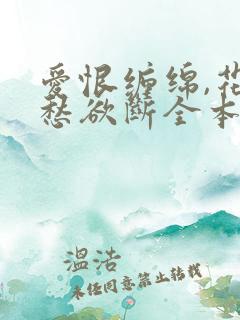 爱恨缠绵,花
愁欲断全本
温洁
未经同意禁止转载